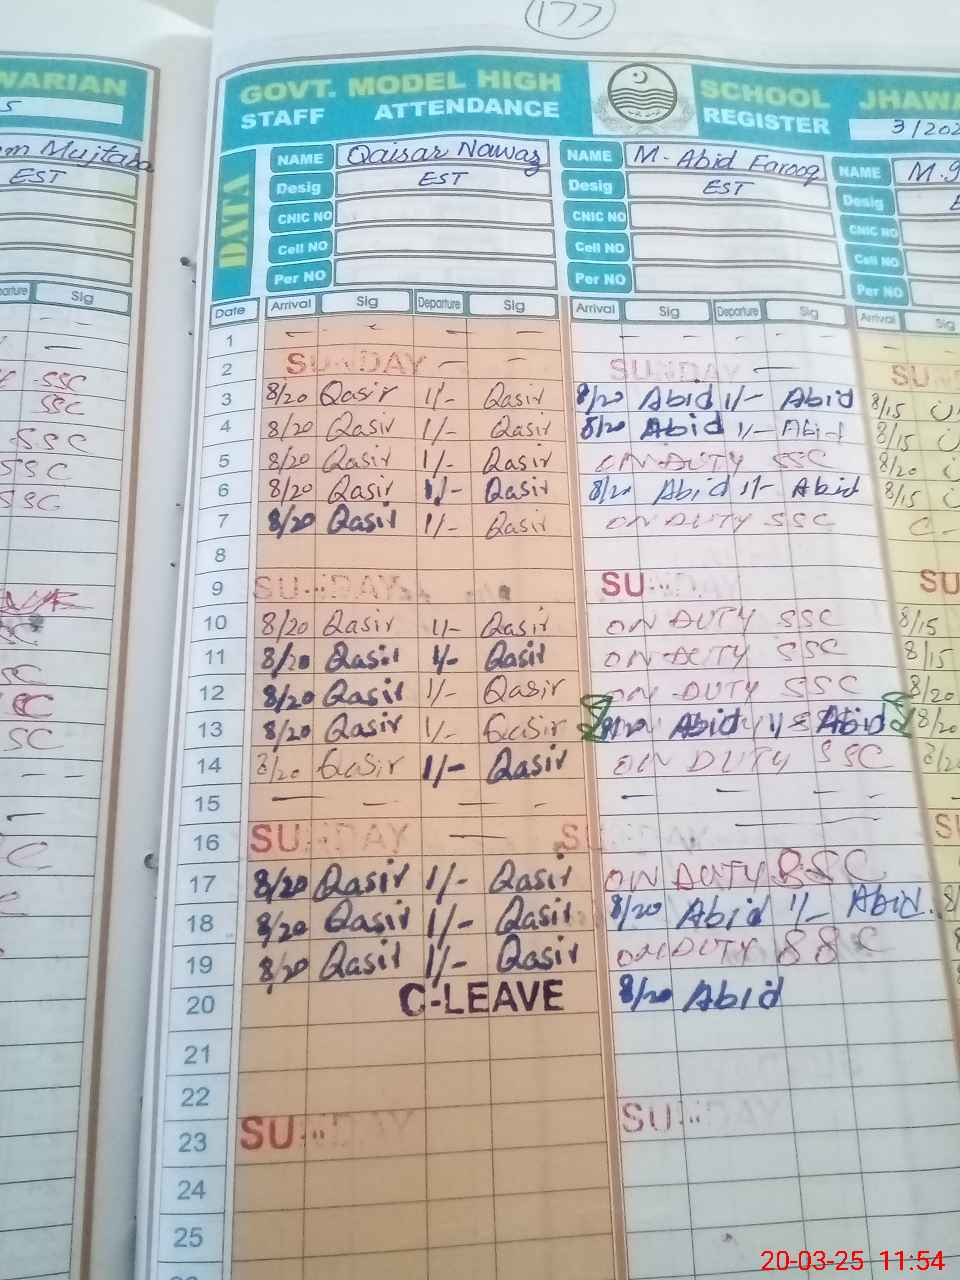 177
WARIAN
5
GOVT. MODEL HIGH SCHOOL JHAWA
STAFF ATTENDANCE REGISTER 3/202
DATA
Mujtaba
EST
NAME Qaisar Nawaz NAME M. Abid Farooq NAME M.
Desig EST Desig EST Desig
CNIC NO CNIC NO CNIC NO
Cell NO Cell NO Cell NO
Per NO Per NO Per NO
parture Sig
Date Arrival Sig Departure Sig Arrival Sig Departure Sig Arrival Sig
1 – – – – – – – –
2 SUNDAY – – SUNDAY – SU
SSC 3 8/20 Qasir 1/- Qasir 8/20 Abid 1/- Abid 8/15
SSC 4 8/20 Qasir 1/- Qasir 8/20 Abid 1/- Abid 8/15
SSC 5 8/20 Qasir 1/- Qasir ON DUTY SSC 8/20
SSC 6 8/20 Qasir 1/- Qasir 8/20 Abid 1/- Abid 8/15
SSC 7 8/20 Qasir 1/- Qasir ON DUTY SSC C-
8
9 SUNDAY SUNDAY SU
10 8/20 Qasir 1/- Qasir ON DUTY SSC 8/15
11 8/20 Qasir 1/- Qasir ON DUTY SSC 8/15
SC 12 8/20 Qasir 1/- Qasir ON DUTY SSC 8/20
C 13 8/20 Qasir 1/- Qasir Abid Abid 8/20
SC 14 8/20 Qasir 1/- Qasir ON DUTY SSC
15 – – – – – – – –
16 SUNDAY – SUNDAY S
C 17 8/20 Qasir 1/- Qasir ON DUTY SSC
18 8/20 Qasir 1/- Qasir 8/20 Abid 1/- Abid
19 8/20 Qasir 1/- Qasir ON DUTY SSC
20 C-LEAVE 8/20 Abid
21
22
23 SUNDAY SUNDAY
24
25
20-03-25 11:54